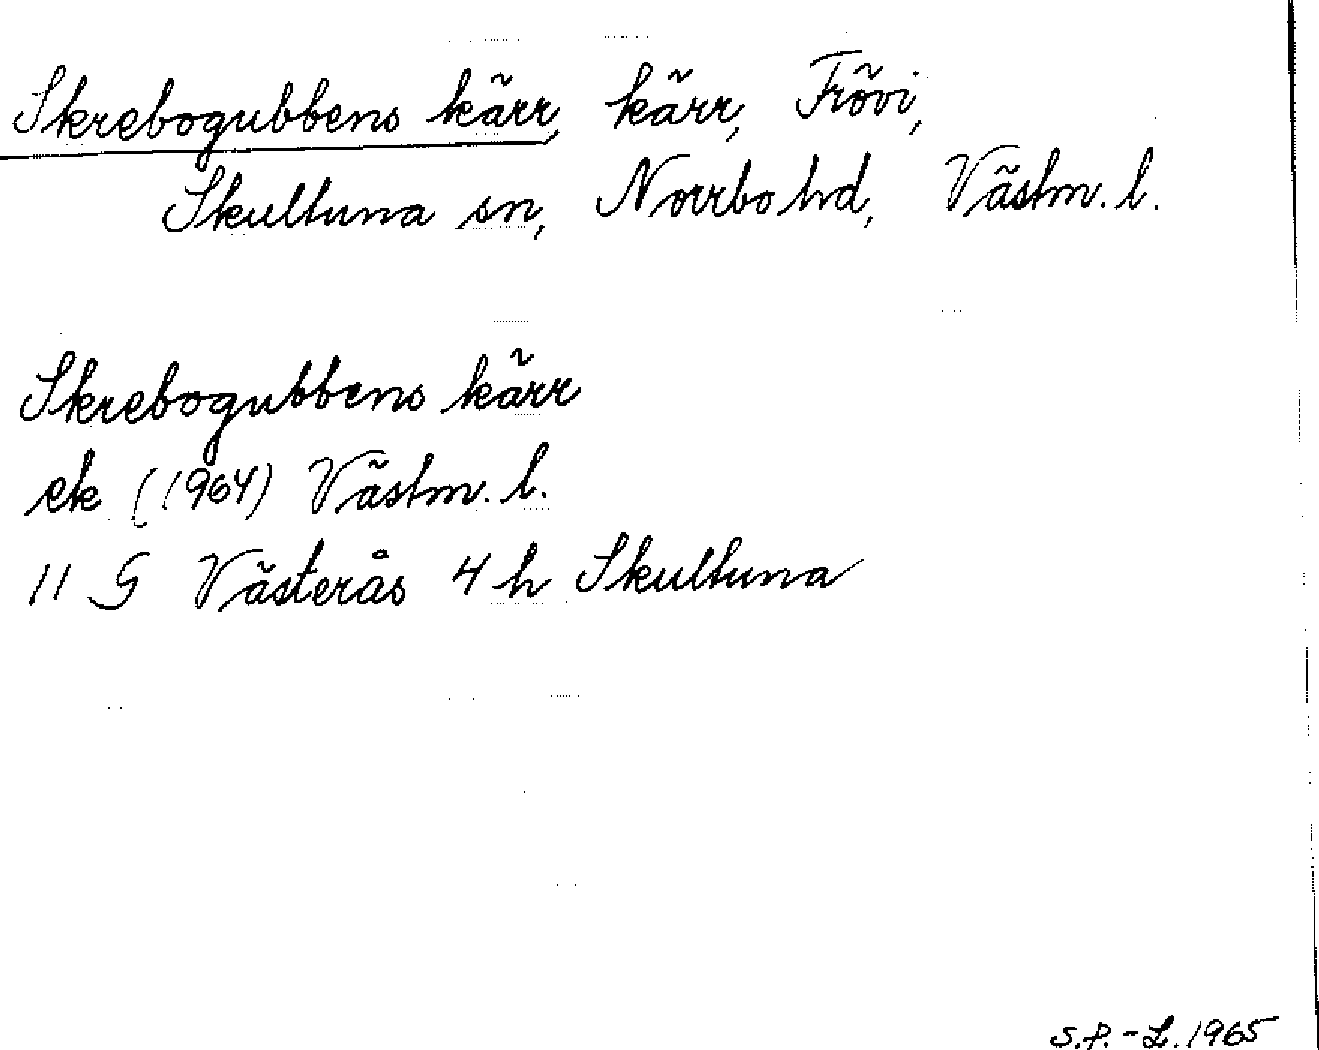 Skrebogubbens kärr, kärr, Frövi,
Skultuna sn, Norrbo hd, Västm. l.
Skrebogubbens kärr
ek (1964) Västm. l.
11 G Västerås 4 h Skultuna
S.P.-L. 1965